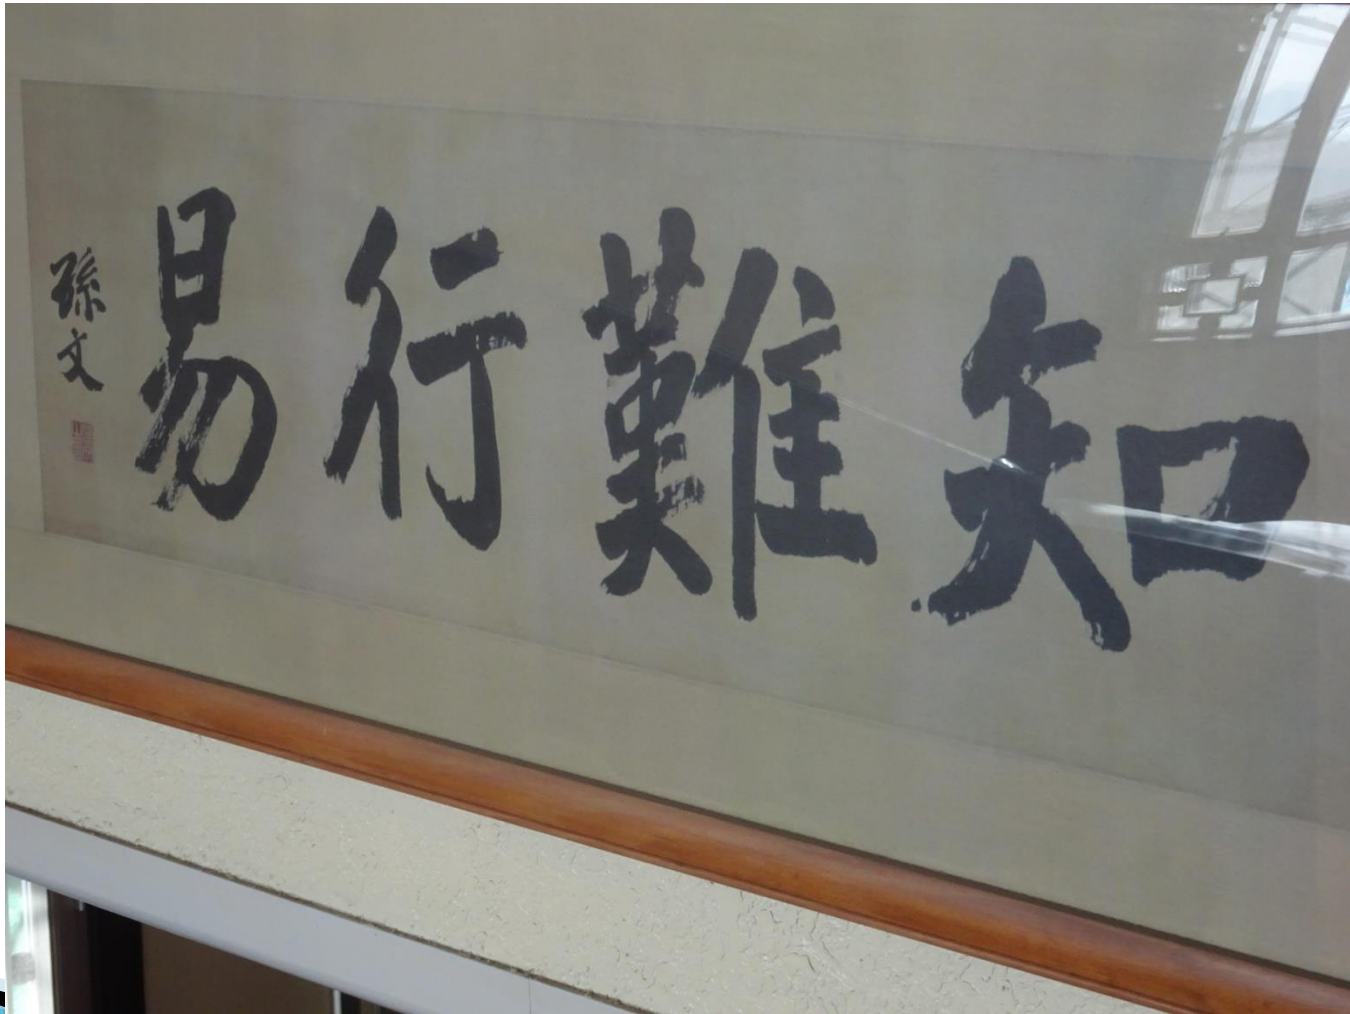 知難行易
孫文